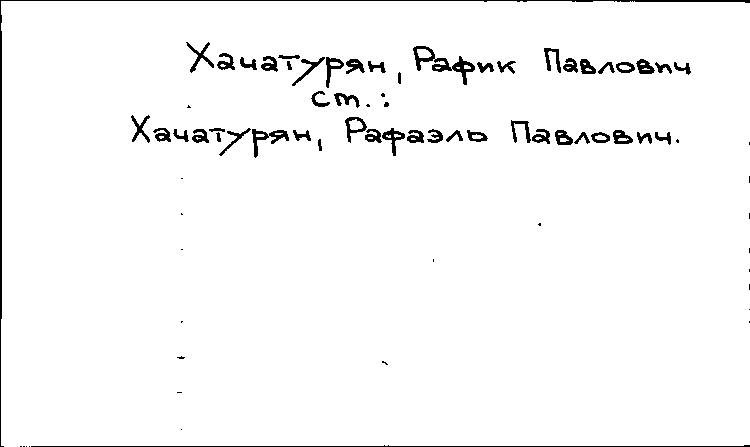 Хачатурян, Рафик Павлович
ст.:
Хачатурян, Рафаэль Павлович.